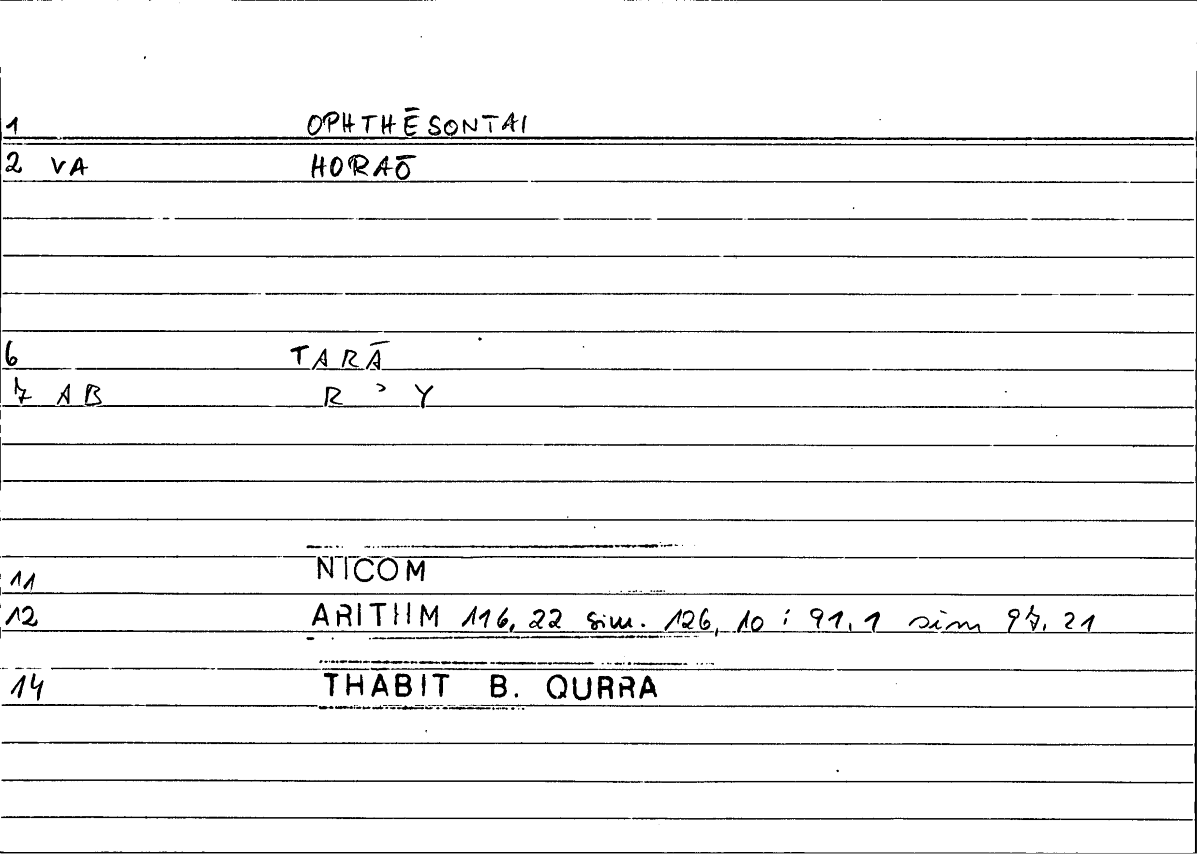 1 OPHTHĒSONTAI
2 VA HORAŌ
6 TARĀ
7 AB R ʾ Y
11 NICOM
12 ARITHM 116, 22 sim. 126, 10 : 91, 1 sim 97, 21
14 THABIT B. QURRA